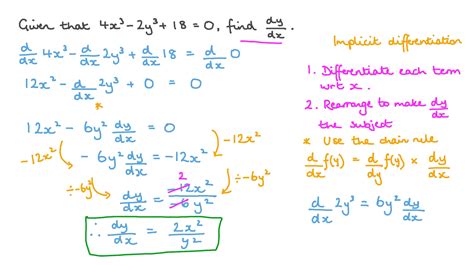 Given that 4x³ – 2y³ + 18 = 0, find dy/dx.
d/dx 4x³ – d/dx 2y³ + d/dx 18 = d/dx 0
12x² – d/dx 2y³ + 0 = 0
*
12x² – 6y² dy/dx = 0
–12x² –12x²
– 6y² dy/dx = –12x²
÷–6y² ÷–6y²
dy/dx = –12x²/–6y²
2
∴ dy/dx = 2x²/y²
Implicit differentiation
1. Differentiate each term
wrt x.
2. Rearrange to make dy/dx
the subject
* Use the chain rule
d/dx f(y) = d/dy f(y) × dy/dx
d/dx 2y³ = 6y² dy/dx